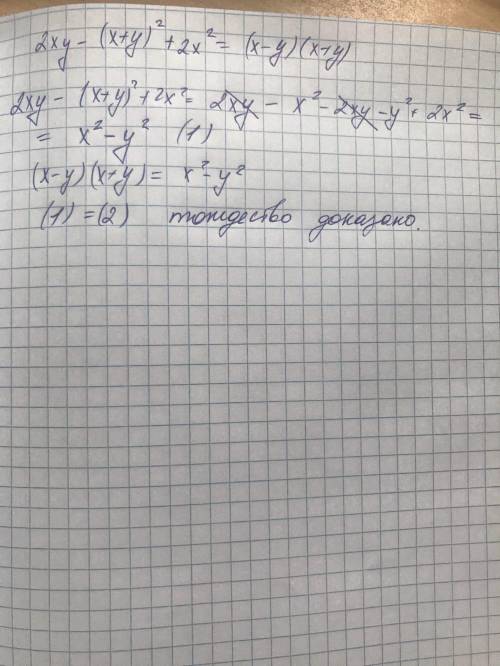 2xy - (x+y)² + 2x² = (x-y)(x+y)
2xy - (x+y)² + 2x² = 2xy - x² - 2xy - y² + 2x² =
= x² - y² (1)
(x-y)(x+y) = x² - y²
(1) = (2) тождество доказано.